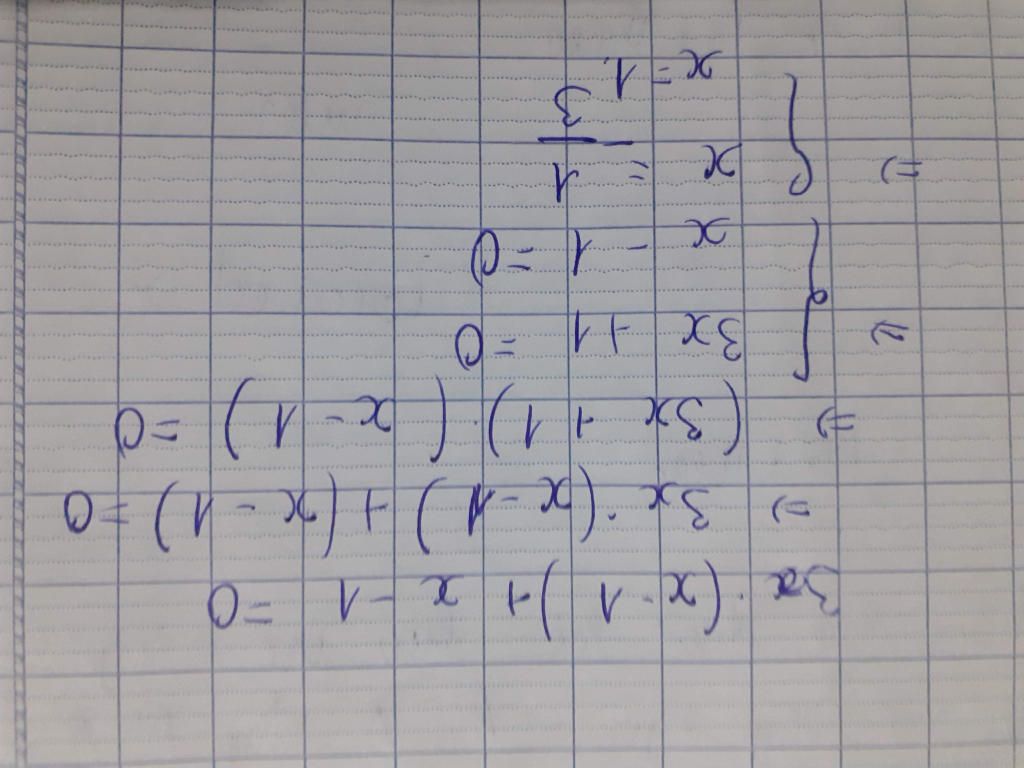 3x . (x - 1) + x - 1 = 0
=> 3x . (x - 1) + (x - 1) = 0
=> (3x + 1) . (x - 1) = 0
=> { 3x + 1 = 0
x - 1 = 0
=> { x = -1/3
x = 1